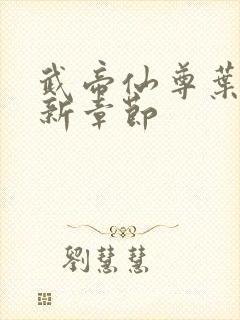 武帝仙尊葉
新章節
劉慧慧